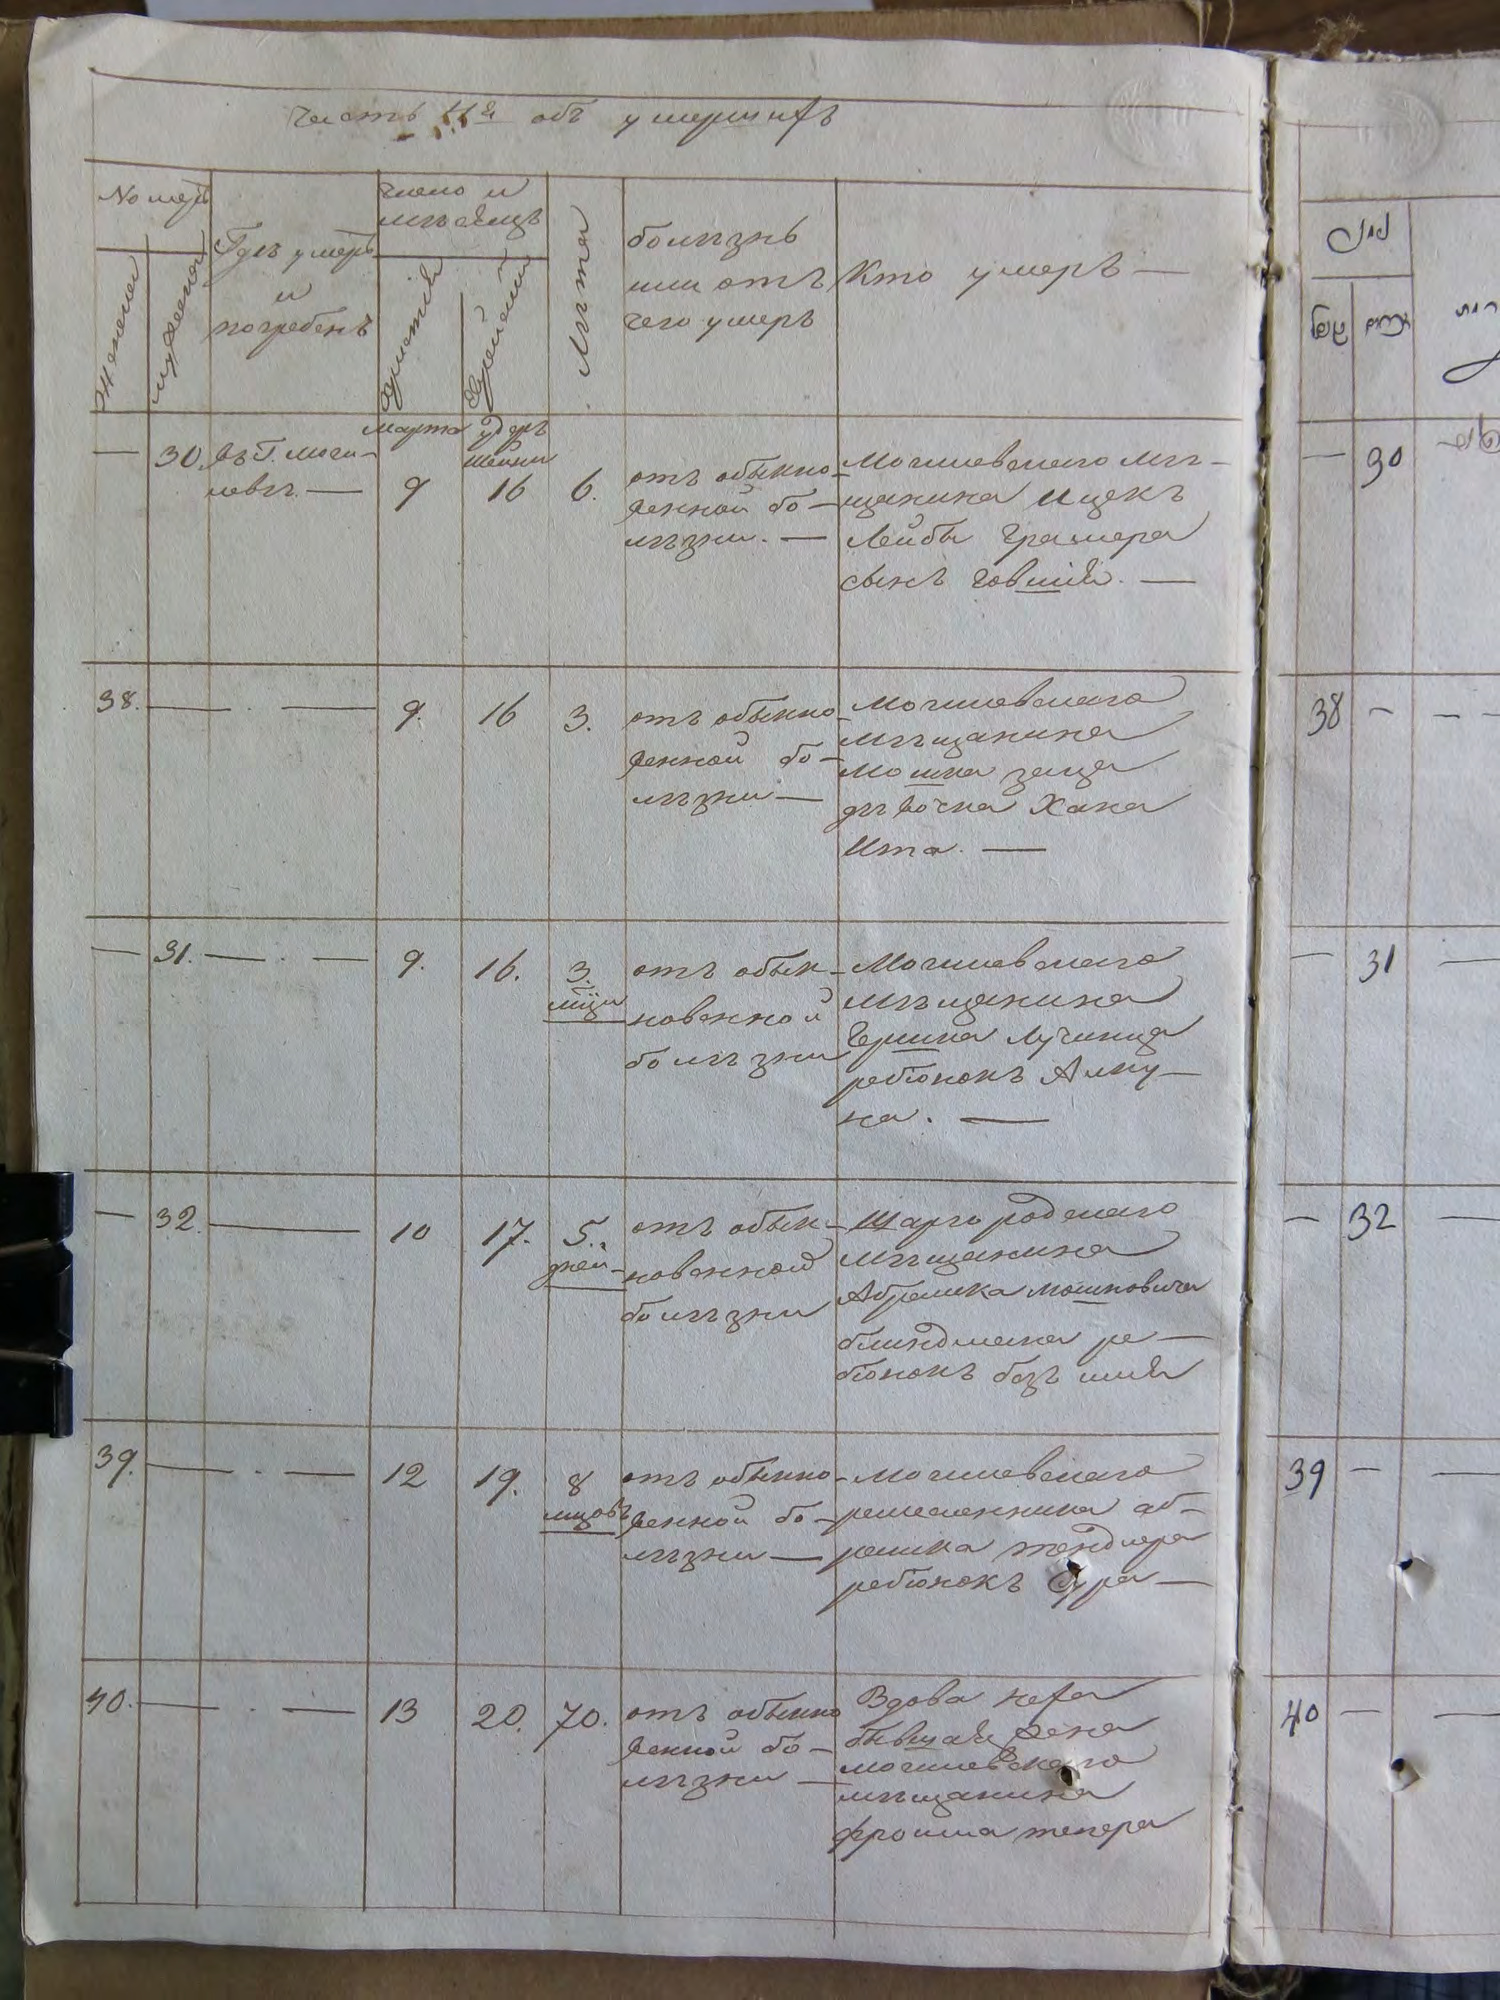 Часть IIя объ умершихъ
Номеръ
Женска
мужеска
Гдѣ умеръ
и
погребенъ
Число и
мѣсяцъ
Христiян
Еврейскiй
Лѣта
болѣзнь
или отъ
чего умеръ
Кто умеръ —
— 30 въ Г. Моги-
левѣ. —
Марта
9
16
6.
отъ обыкно-
венной бо-
лѣзни. —
Могилевскаго мѣ-
щанина Ицекъ
Лейбы Грамера
сынъ Говшiя. —
38. — . —
9. 16 3.
отъ обыкно-
венной бо-
лѣзни —
Могилевскаго
мѣщанина
Мошка Заца
дѣвочка Хана
Ита. —
— 31. — . —
9. 16. 3.
мцы
отъ обык-
новенной
болѣзни
Могилевскаго
мѣщанина
Гершка Лучинца
ребiонокъ Алку-
на. —
— 32. —
10 17. 5.
дней
отъ обык-
новенной
болѣзни
Шаргородскаго
мѣщанина
Абрамка Мошковича
блиндмана ре-
бiонокъ безъ имя
39. — . —
12 19. 8
мцовъ
отъ обыкно-
венной бо-
лѣзни —
Могилевскаго
ремесленника аб-
рамка тендлера
ребiонокъ Сура —
40. — . —
13 20. 70.
отъ обыкно
венной бо-
лѣзни —
Вдова неха
бывшая жена
могилевскаго
мѣщанина
фроима тепера
— 30
38 —
— 31
— 32
39 —
40 —